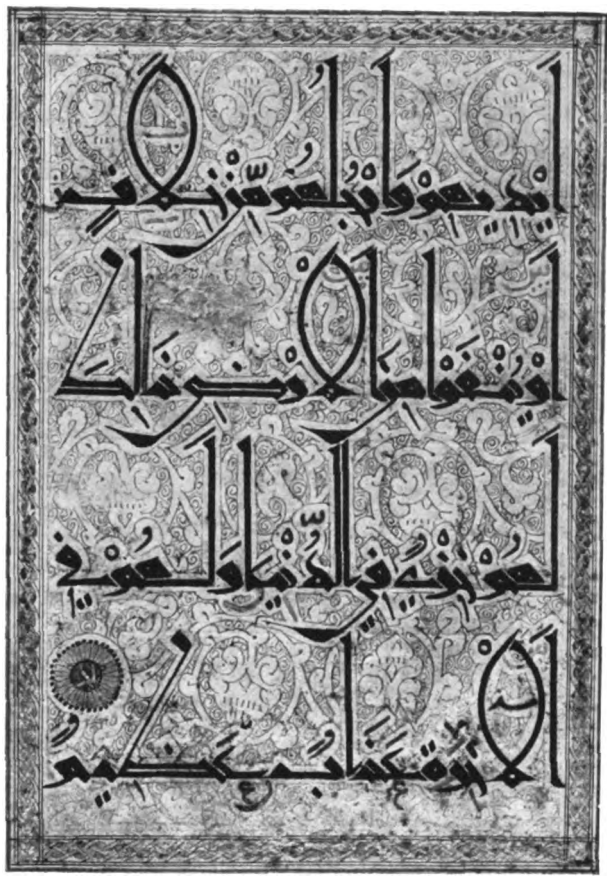 أَيْدِيهِمْ وَأَرْجُلُهُم مِّنْ خِلَافٍ
أَوْ يُنْفَوْا مِنَ الْأَرْضِ ذَلِكَ
لَهُمْ خِزْيٌ فِي الدُّنْيَا وَلَهُمْ فِي
الْآخِرَةِ عَذَابٌ عَظِيمٌ